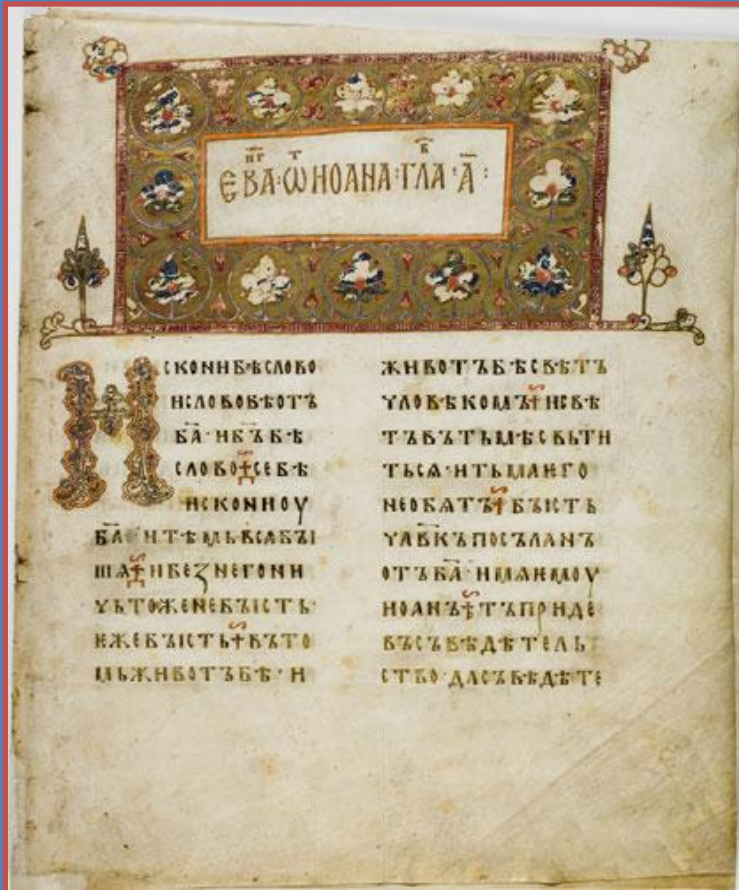 ЕВАⷩ꙯ⷢ·Ѡⷮ ИОАНА:ГЛАⷡ·А҃:
ИСКОНИБѢСЛОВО
ИСЛОВОБѢОТЪ
БА҃·ИБ҃ЪБѢ
СЛОВО☩СЕБѢ
ИСКОНИОУ
БА҃·ИТѢМЬВСѦБЪІ
ШѦ☩ИБЕЗНЕГОНИ
ЧЬТОЖЕНЕБЪІСТЬ·
ЕЖЕБЪІСТЬ☩ВЪТО
МЬЖИВОТЪБѢ·И
ЖИВОТЪБѢСВѢТЪ
ЧЛОВѢКОМЪ☩ИСВѢ
ТЪВЪТЬМѢСВЬТИ
ТЬСѦ·ИТЬМАѤГО
НЕОБѦТЪ☩БЪІСТЬ
ЧЛ҃ВКЪПОСЪЛАНЪ
ОТЪБА҃·ИМѦѤМОУ
ИОАНЪ☩ТЪПРИДЕ
ВЪСЪВѢДѢТЕЛЬ
СТВО·ДАСЪВѢДѢТЕ